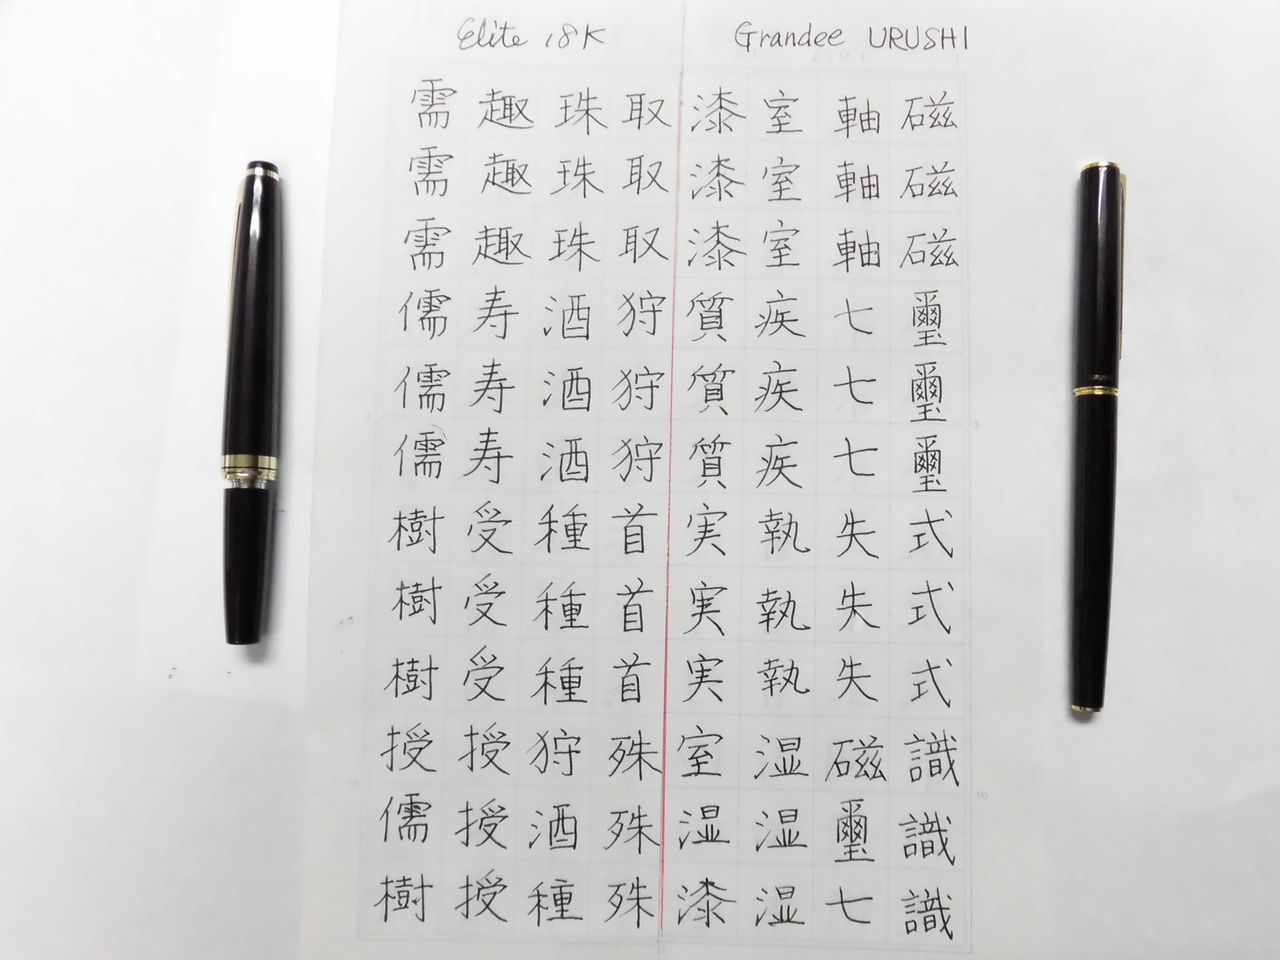 Elite 18K
Grandee URUSHI
磁磁磁璽璽璽式式式識識識
軸軸軸七七七失失失磁璽七
室室室疾疾疾執執執湿湿湿
漆漆漆質質質実実実室湿漆
取取取狩狩狩首首首殊殊殊
珠珠珠酒酒酒種種種狩酒種
趣趣趣寿寿寿受受受授授授
需需需儒儒儒樹樹樹授儒樹